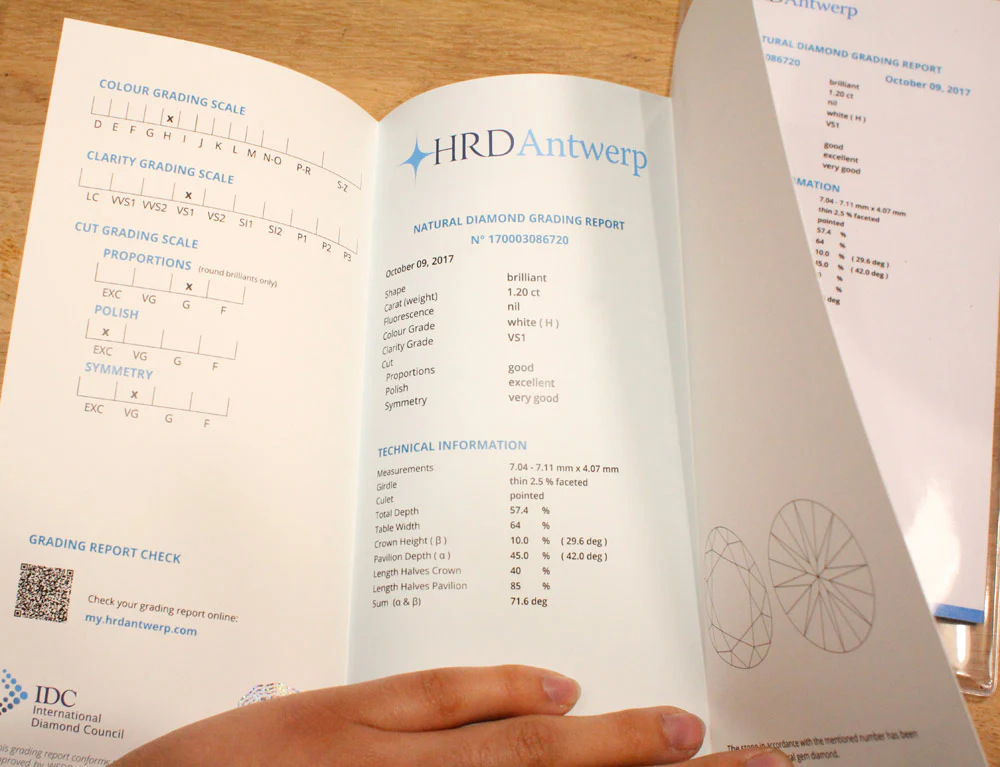 COLOUR GRADING SCALE
x
D E F G H I J K L M N-O P-R S-Z
CLARITY GRADING SCALE
x
LC VVS1 VVS2 VS1 VS2 SI1 SI2 P1 P2 P3
CUT GRADING SCALE
PROPORTIONS (round brilliants only)
x
EXC VG G F
POLISH
x
EXC VG G F
SYMMETRY
x
EXC VG G F
GRADING REPORT CHECK
Check your grading report online:
my.hrdantwerp.com
IDC
International
Diamond Council
his grading report conforms
HRD Antwerp
NATURAL DIAMOND GRADING REPORT
N° 170003086720
October 09, 2017
Shape brilliant
Carat (weight) 1.20 ct
Fluorescence nil
Colour Grade white ( H )
Clarity Grade VS1
Cut
Proportions good
Polish excellent
Symmetry very good
TECHNICAL INFORMATION
Measurements 7.04 - 7.11 mm x 4.07 mm
Girdle thin 2.5 % faceted
Culet pointed
Total Depth 57.4 %
Table Width 64 %
Crown Height ( β ) 10.0 % ( 29.6 deg )
Pavilion Depth ( α ) 45.0 % ( 42.0 deg )
Length Halves Crown 40 %
Length Halves Pavilion 85 %
Sum (α & β) 71.6 deg
The stone in accordance with the mentioned number has been
al gem diamond.
RDAntwerp
TURAL DIAMOND GRADING REPORT
086720
October 09, 2017
brilliant
1.20 ct
nil
white ( H )
VS1
good
excellent
very good
MATION
7.04 - 7.11 mm x 4.07 mm
thin 2.5 % faceted
pointed
57.4 %
64 %
10.0 % ( 29.6 deg )
45.0 % ( 42.0 deg )
%
%
deg